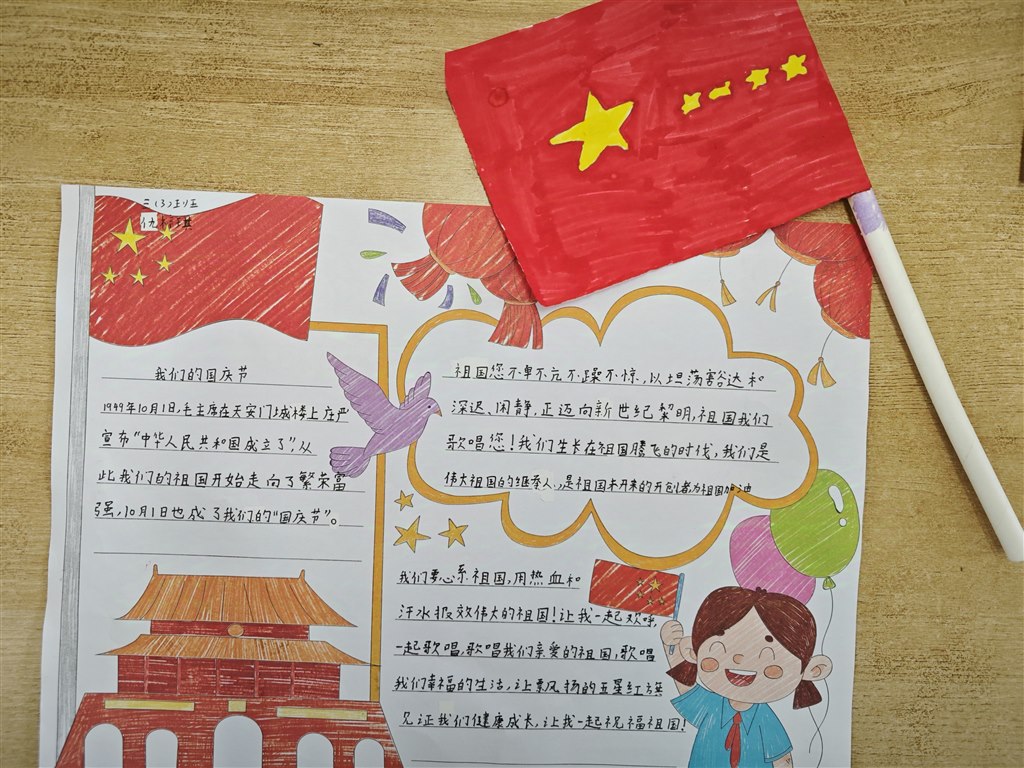 三(3)班
我们的国庆节
1949年10月1日,毛主席在天安门城楼上庄严
宣布“中华人民共和国成立了”,从
此我们的祖国开始走向了繁荣富
强,10月1日也成了我们的“国庆节”。
祖国您不卑不亢不躁不惊,以坦荡豁达和
深迟、闲静,正迈向新世纪黎明,祖国我们
歌唱您!我们生长在祖国腾飞的时代,我们是
伟大祖国的继承人,是祖国未开来的开创者为祖国加油
我们要心系祖国,用热血和
汗水报效伟大的祖国!让我一起欢呼,
一起歌唱,歌唱我们亲爱的祖国,歌唱
我们幸福的生活,让乘风扬的五星红旗
见证我们健康成长,让我一起祝福祖国!